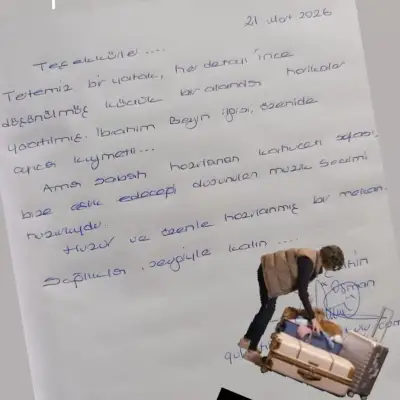 21 Mart 2026
Teşekkürler ....
Tertemiz bir yatak, her detayı ince
düşünülmüş küçük bir alandan harikalar
yaratılmış. İbrahim Beyin ilgisi, özenide
ayrıca kıymetli...
Ama sabah hazırlanan kahvaltı sofrası,
bize eşlik edeceği düşünülen müzik seçimi
huzurluydu.
Huzur ve özenle hazırlanmış bir mekan.
Sağlıkla, sevgiyle kalın ....
Osman